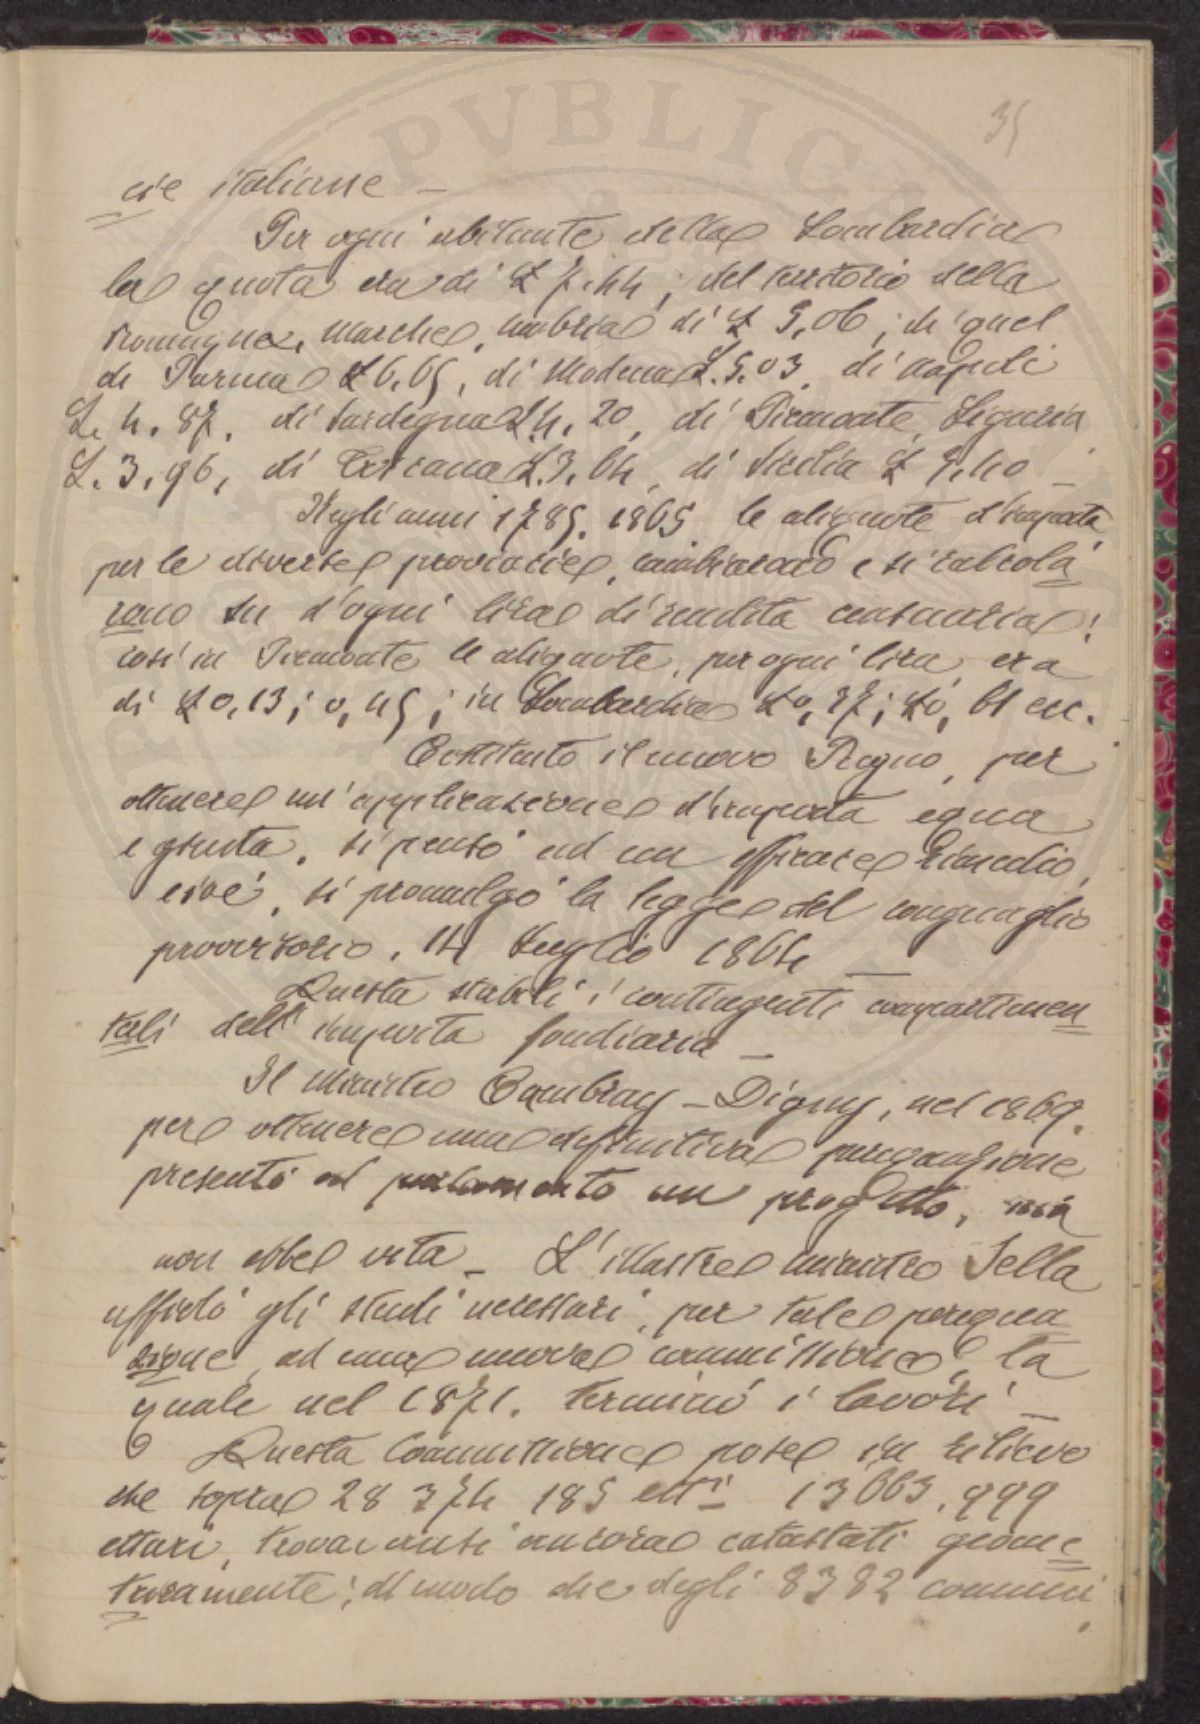 35
cie italiane –
Per ogni abitante della Lombardia
la quota era di £ 7.44; del territorio della
Romagna, Marche, Umbria di £ 5,06; di quel
di Parma £ 6.65, di Modena £. 5.03, di Napoli
£. 4.87, di Sardegna £ 4.20, di Piemonte, Liguria
£. 3.96, di Toscana £. 3.64, di Sicilia £
Negli anni 1785. 1865 le aliquote d'imposta
per le diverse provincie, cambiarono e si calcola
rono su d'ogni lira di rendita censuaria:
così in Piemonte le aliquote, per ogni lira, era
di £ 0,13; 0,45; in Lombardia £ 0,27; £ 0,61 ecc.
Costituito il nuovo Regno, per
ottenere un'applicazione d'imposta equa
e giusta, si pensò ad un efficace rimedio,
cioè, si promulgò la legge del conguaglio
provvisorio, 14 Luglio 1864 —
Questa stabilì i contingenti compartimen
tali dell'imposta fondiaria –
Il ministro Cambray – Digny, nel 1869,
per ottenere una definitiva perequazione
presentò al parlamento un progetto, ma
non ebbe vita – L'illustre ministro Sella
affidò gli studi necessari, per tale perequa
zione, ad una nuova commissione, la
quale nel 1871. terminò i lavori –
Questa Commissione pose in rilievo
che sopra 28 374 185 ett.ri 13 663,999
ettari, trovavansi ancora catastati geome
tricamente; di modo che degli 8382 comuni,
PVBLICA